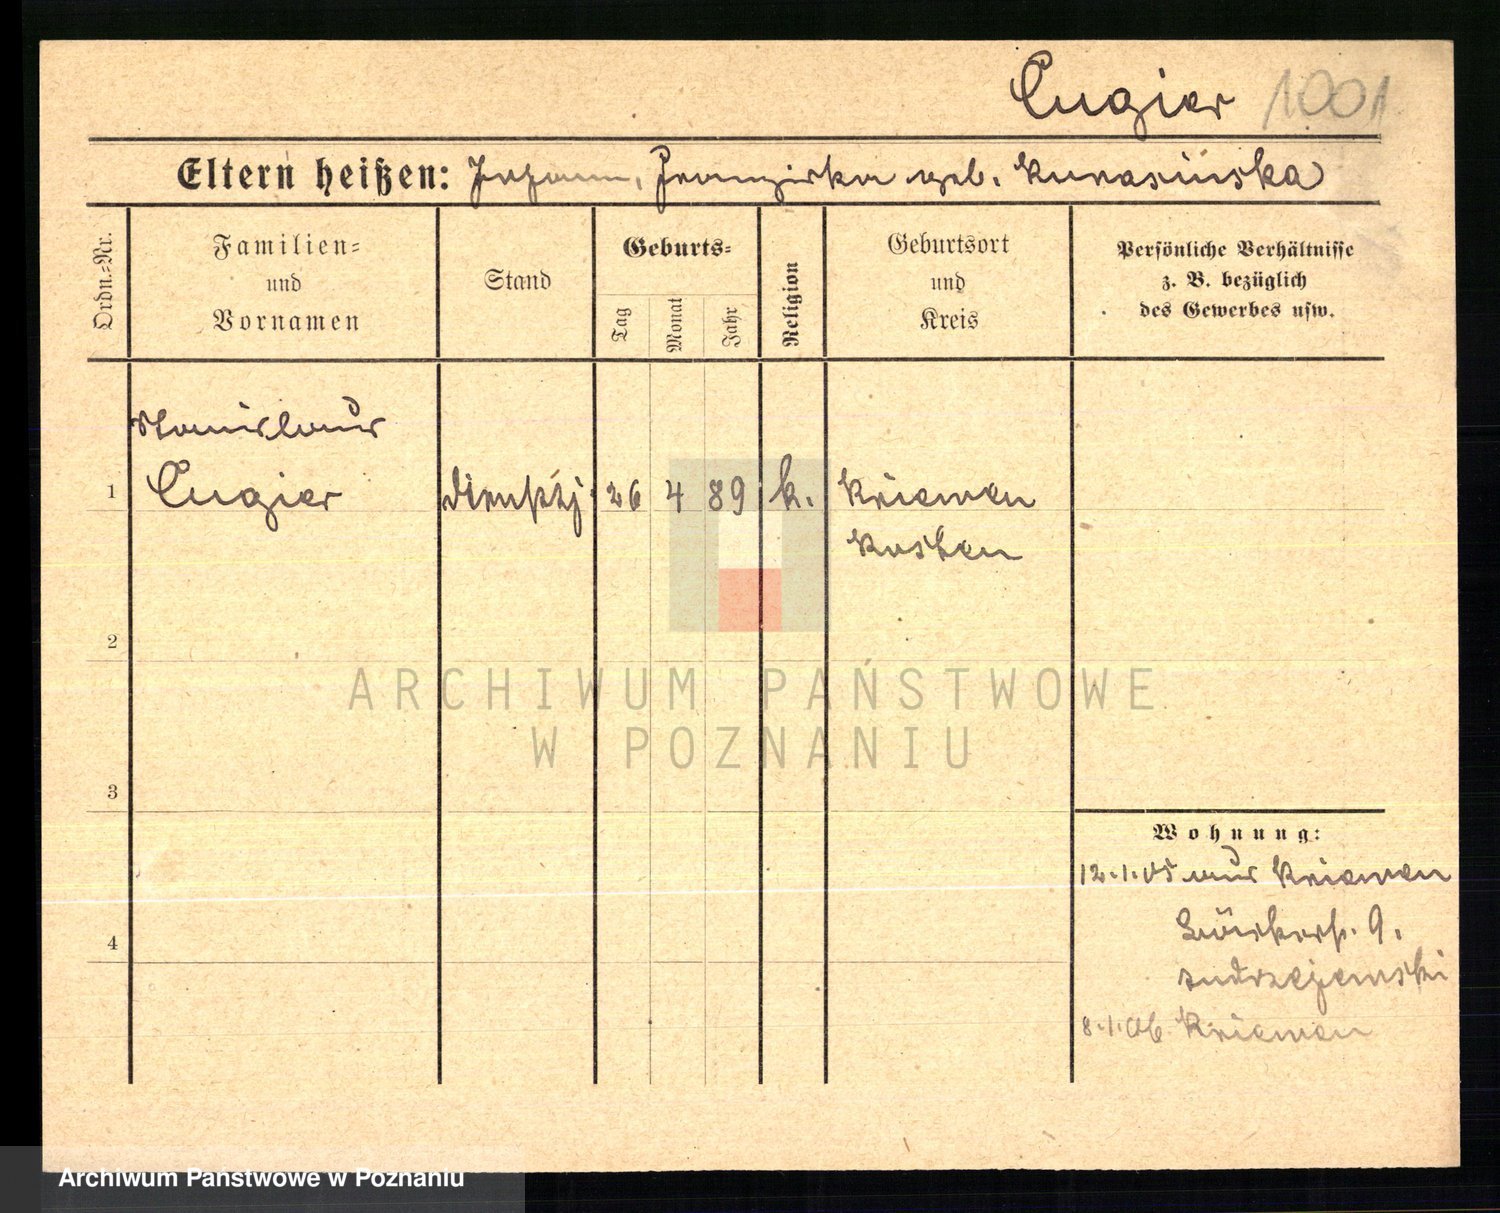 Cugier 1001
Eltern heißen: Johann, Franziska geb. Kurasińska
Ordn.-Nr.
Familien-
und
Vornamen
Stand
Geburts-
Tag
Monat
Jahr
Religion
Geburtsort
und
Kreis
Persönliche Verhältnisse
z. B. bezüglich
des Gewerbes usw.
Stanislaus
1 Cugier 26 4 89 k. Kriewen
Kosten
2
ARCHIWUM PAŃSTWOWE
W POZNANIU
3
Wohnung:
12.1.05 aus Kriewen
4
9.
Andrzejewski
8.1.06 Kriewen
Archiwum Państwowe w Poznaniu